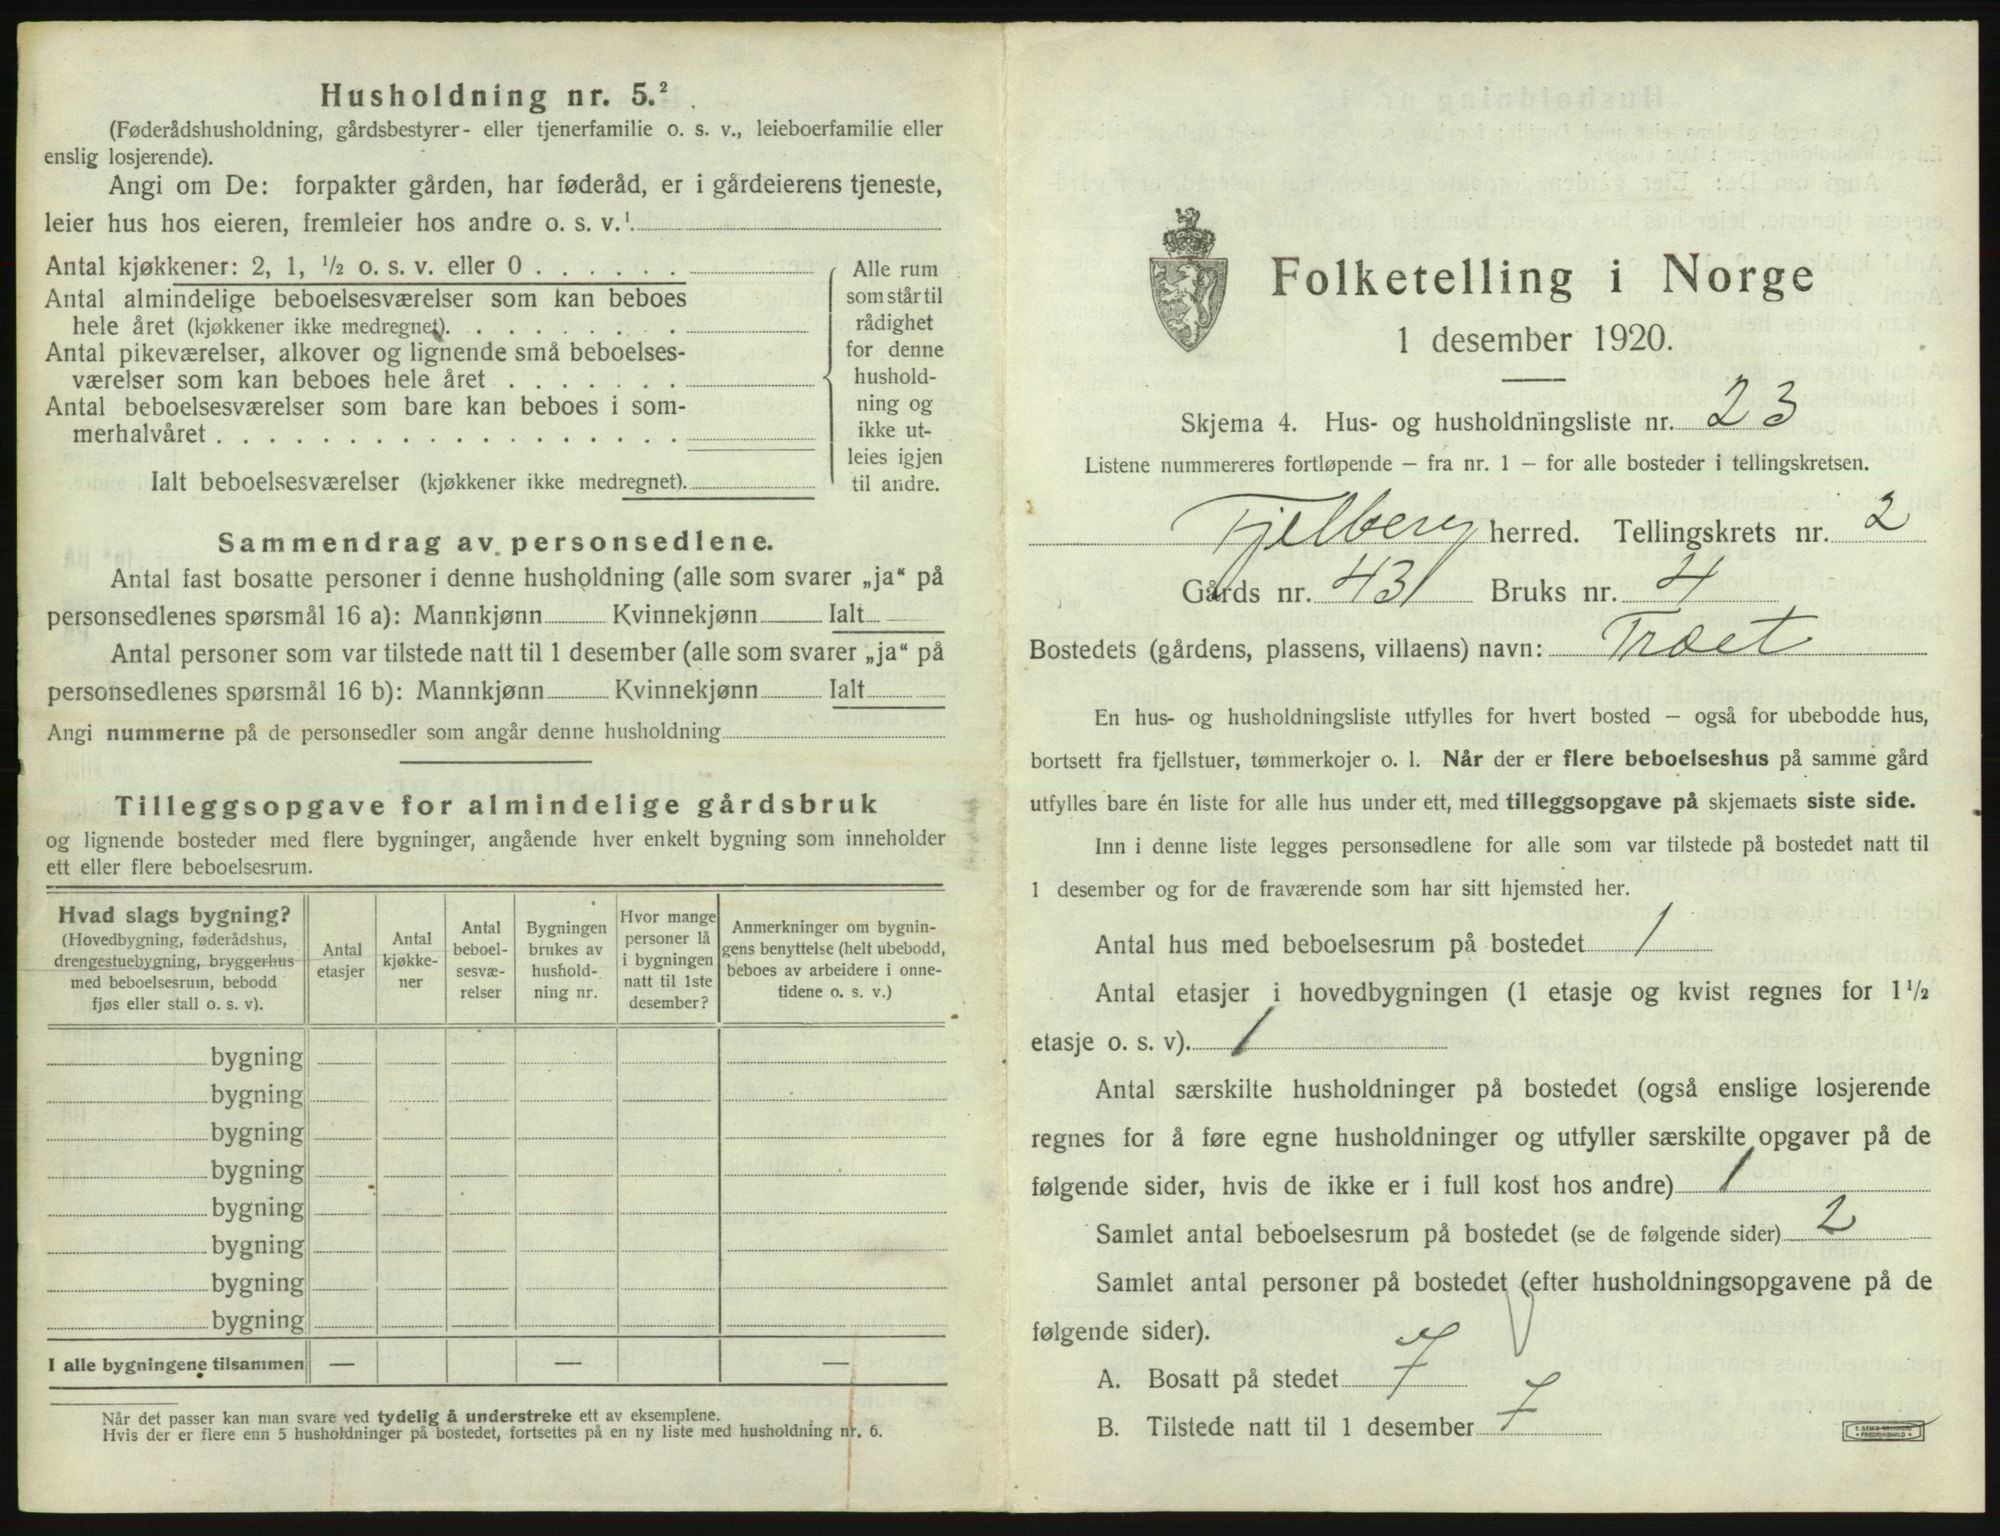 Husholdning nr. 5.²
(Føderådshusholdning, gårdsbestyrer- eller tjenerfamilie o. s. v., leieboerfamilie eller
enslig losjerende).
Angi om De: forpakter gården, har føderåd, er i gårdeierens tjeneste,
leier hus hos eieren, fremleier hos andre o. s. v.¹
Antal kjøkkener: 2, 1, ½ o. s. v. eller 0 . . . . . .
Antal almindelige beboelsesværelser som kan beboes
hele året (kjøkkener ikke medregnet). . . . . . . . .
Antal pikeværelser, alkover og lignende små beboelses-
værelser som kan beboes hele året . . . . . . .
Antal beboelsesværelser som bare kan beboes i som-
merhalvåret . . . . . . . . . . . . . . . . . .
Ialt beboelsesværelser (kjøkkener ikke medregnet).
Alle rum
som står til
rådighet
for denne
hushold-
ning og
ikke ut-
leies igjen
til andre.
Sammendrag av personsedlene.
Antal fast bosatte personer i denne husholdning (alle som svarer „ja“ på
personsedlenes spørsmål 16 a): Mannkjønn Kvinnekjønn Ialt
Antal personer som var tilstede natt til 1 desember (alle som svarer „ja“ på
personsedlenes spørsmål 16 b): Mannkjønn Kvinnekjønn Ialt
Angi nummerne på de personsedler som angår denne husholdning
Tilleggsopgave for almindelige gårdsbruk
og lignende bosteder med flere bygninger, angående hver enkelt bygning som inneholder
ett eller flere beboelsesrum.
Hvad slags bygning?
(Hovedbygning, føderådshus,
drengestuebygning, bryggerhus
med beboelsesrum, bebodd
fjøs eller stall o. s. v).
Antal
etasjer
Antal
kjøkke-
ner
Antal
beboel-
sesvæ-
relser
Bygningen
brukes av
hushold-
ning nr.
Hvor mange
personer lå
i bygningen
natt til 1ste
desember?
Anmerkninger om bygnin-
gens benyttelse (helt ubebodd,
beboes av arbeidere i onne-
tidene o. s. v.)
bygning
bygning
bygning
bygning
bygning
bygning
bygning
bygning
I alle bygningene tilsammen — — —
Når det passer kan man svare ved tydelig å understreke ett av eksemplene.
Hvis der er flere enn 5 husholdninger på bostedet, fortsettes på en ny liste med husholdning nr. 6.
Folketelling i Norge
1 desember 1920.
Skjema 4. Hus- og husholdningsliste nr. 23
Listene nummereres fortløpende — fra nr. 1 — for alle bosteder i tellingskretsen.
Fjelberg herred. Tellingskrets nr. 2
Gårds nr. 431 Bruks nr. 4
Bostedets (gårdens, plassens, villaens) navn: Træet
En hus- og husholdningsliste utfylles for hvert bosted — også for ubebodde hus,
bortsett fra fjellstuer, tømmerkojer o. l. Når der er flere beboelseshus på samme gård
utfylles bare én liste for alle hus under ett, med tilleggsopgave på skjemaets siste side.
Inn i denne liste legges personsedlene for alle som var tilstede på bostedet natt til
1 desember og for de fraværende som har sitt hjemsted her.
Antal hus med beboelsesrum på bostedet 1
Antal etasjer i hovedbygningen (1 etasje og kvist regnes for 1½
etasje o. s. v). 1
Antal særskilte husholdninger på bostedet (også enslige losjerende
regnes for å føre egne husholdninger og utfyller særskilte opgaver på de
følgende sider, hvis de ikke er i full kost hos andre) 1
Samlet antal beboelsesrum på bostedet (se de følgende sider) 2
Samlet antal personer på bostedet (efter husholdningsopgavene på de
følgende sider).
A. Bosatt på stedet 7
B. Tilstede natt til 1 desember 7